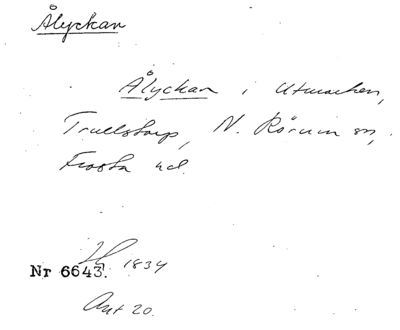 Ålyckan
Ålyckan i Utmarken,
Trullstorp, N. Rörum sn,
Frosta hd.
1834
Nr 6643.
Akt 20.